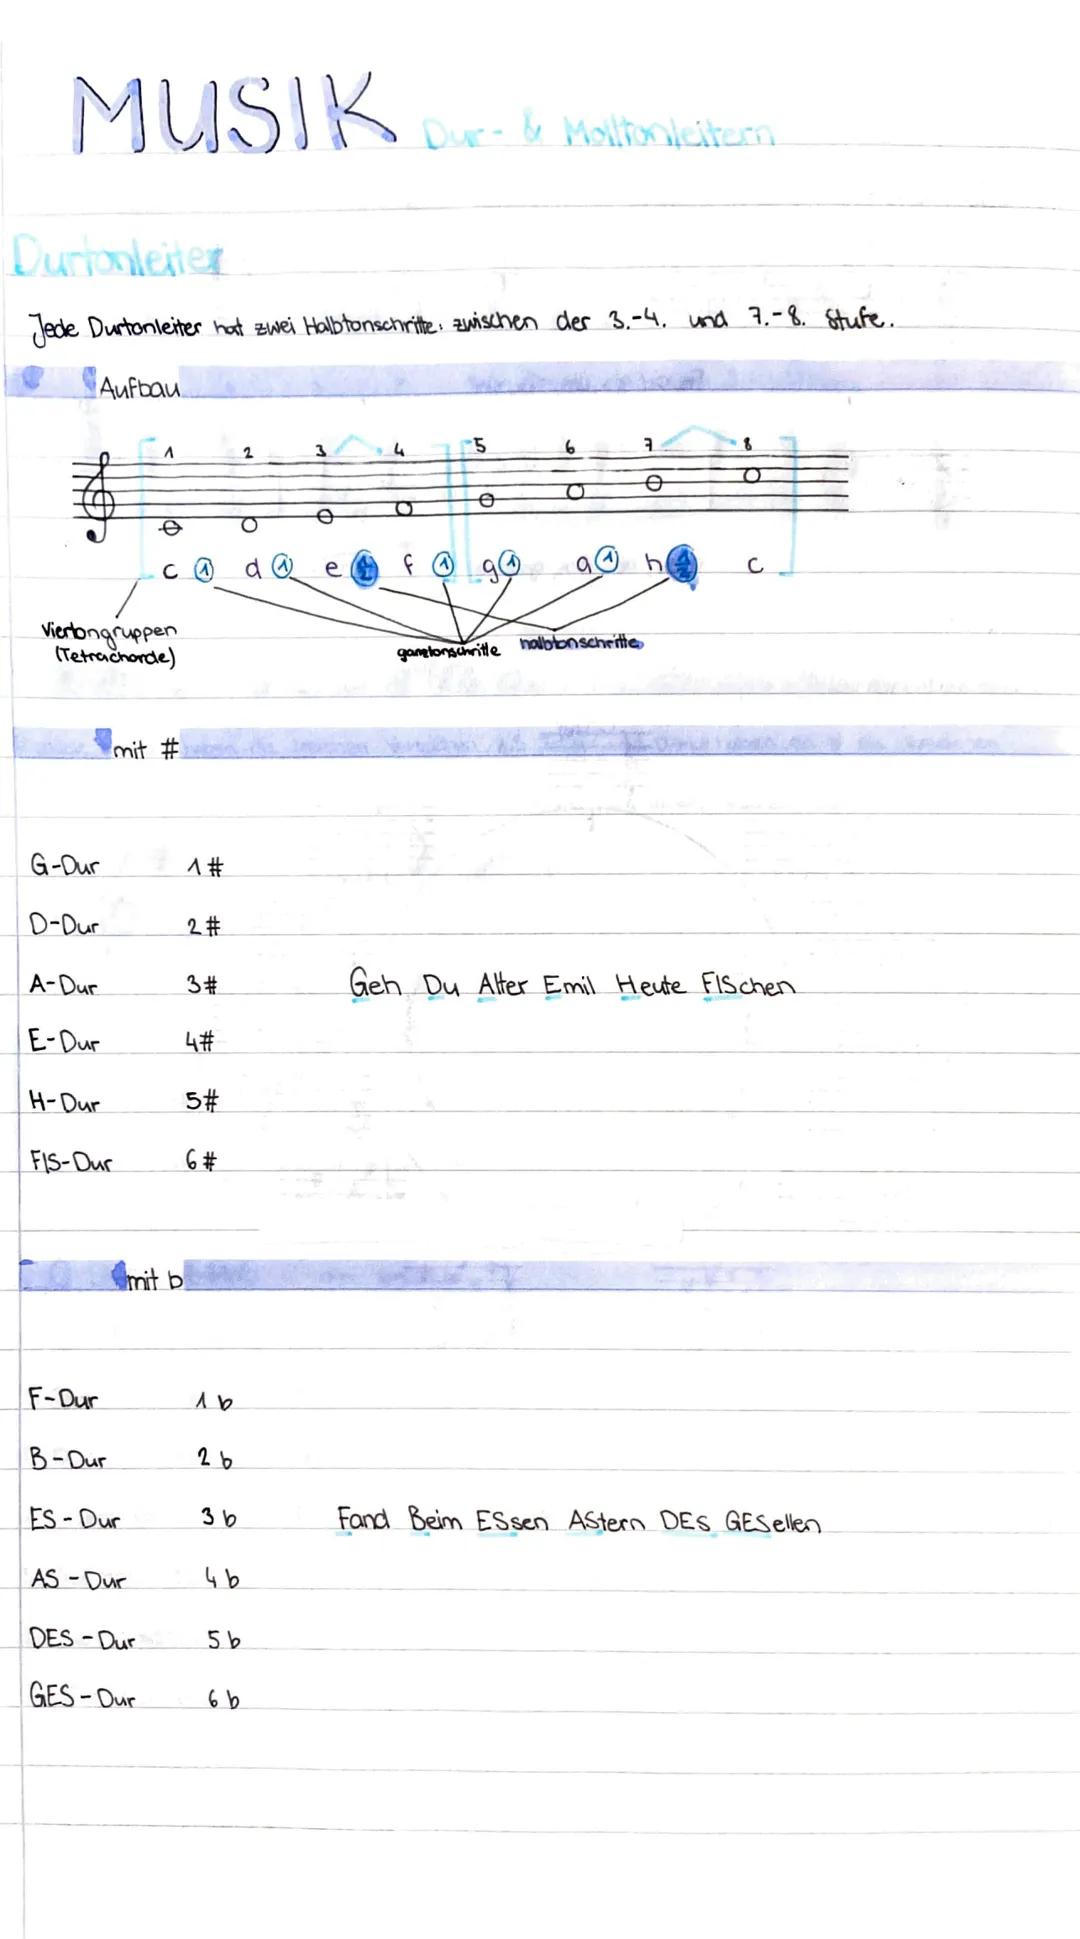 MUSIK Dur- & Molltonleitern
Durtonleiter
Jede Durtonleiter hat zwei Halbtonschritte: zwischen der 3.-4. und 7.-8. Stufe.
Aufbau
1 2 3 4 5 6 7 8
c 1 d 1 e 1/2 f 1 g 1 a 1 h 1/2 c
Viertongruppen
(Tetrachorde)
ganztonschritte halbtonschritte
mit #
G-Dur 1#
D-Dur 2#
A-Dur 3# Geh Du Alter Emil Heute FISchen
E-Dur 4#
H-Dur 5#
FIS-Dur 6#
mit b
F-Dur 1 b
B-Dur 2 b
ES-Dur 3 b Fand Beim ESsen AStern DEs GESellen
AS-Dur 4 b
DES-Dur 5 b
GES-Dur 6 b